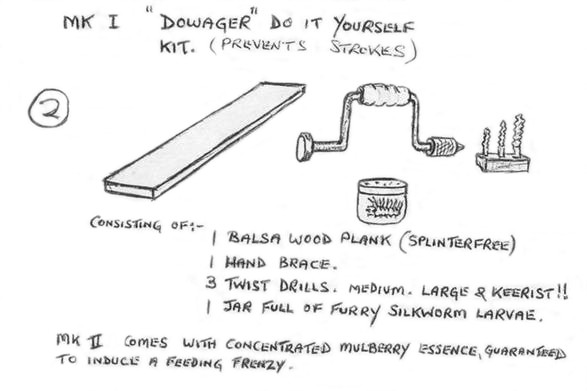 MK I "DOWAGER" DO IT YOURSELF
KIT. (PREVENTS STROKES)
2
CONSISTING OF:-
1 BALSA WOOD PLANK (SPLINTERFREE)
1 HAND BRACE.
3 TWIST DRILLS. MEDIUM. LARGE & KEERIST!!
1 JAR FULL OF FURRY SILKWORM LARVAE.
MK II COMES WITH CONCENTRATED MULBERRY ESSENCE, GUARANTEED
TO INDUCE A FEEDING FRENZY.